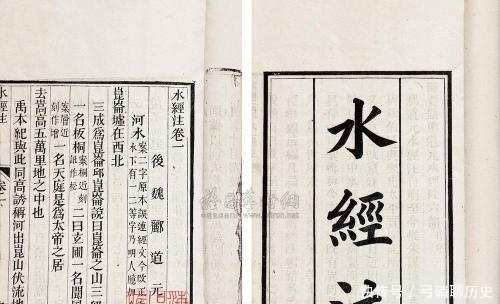 水經注卷一
後魏酈道元
河水案二字原本誤連經文今改正
水下有一二等字乃明人臆
崑崙墟在西北
三成爲崑崙邱崑崙說曰崑崙之山三
一名板桐案桐近刻訛作松二曰玄圃一名閬
案層近刻作增一名天庭是爲太帝之居
去嵩高五萬里地之中也
禹本紀與此同高誘稱河出崑山伏流
水經注
卷一
水經注
快传号/弓硝聊历史